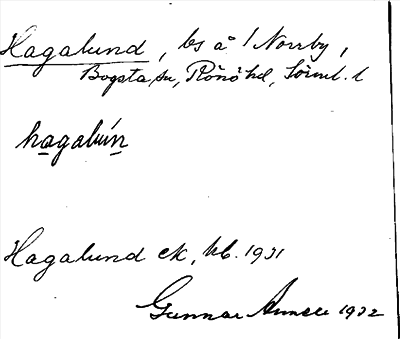 Hagalund, bs å 1 Norrby,
Bogsta sn, Rönö hd, Sörml. l
hagalun
Hagalund ek, kb. 1931
Gunnar 1932